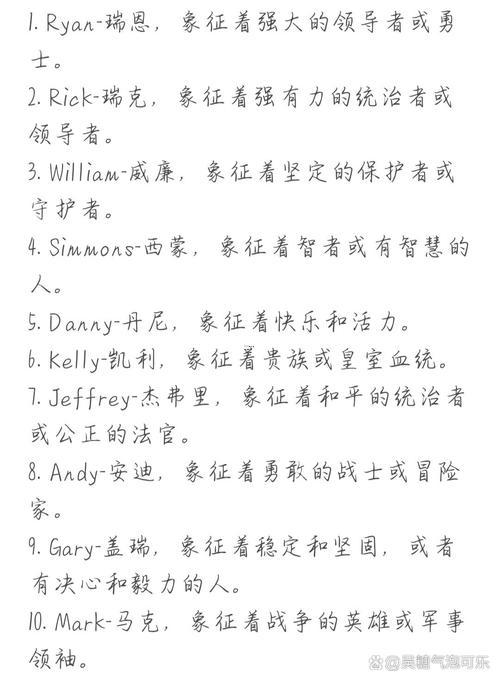 1. Ryan-瑞恩，象征着强大的领导者或勇
士。
2. Rick-瑞克，象征着强有力的统治者或
领导者。
3. William-威廉，象征着坚定的保护者或
守护者。
4. Simmons-西蒙，象征着智者或有智慧的
人。
5. Danny-丹尼，象征着快乐和活力。
6. Kelly-凯利，象征着贵族或皇室血统。
7. Jeffrey-杰弗里，象征着和平的统治者
或公正的法官。
8. Andy-安迪，象征着勇敢的战士或冒险
家。
9. Gary-盖瑞，象征着稳定和坚固，或者
有决心和毅力的人。
10. Mark-马克，象征着战争的英雄或军事
领袖。
@吴糖气泡可乐